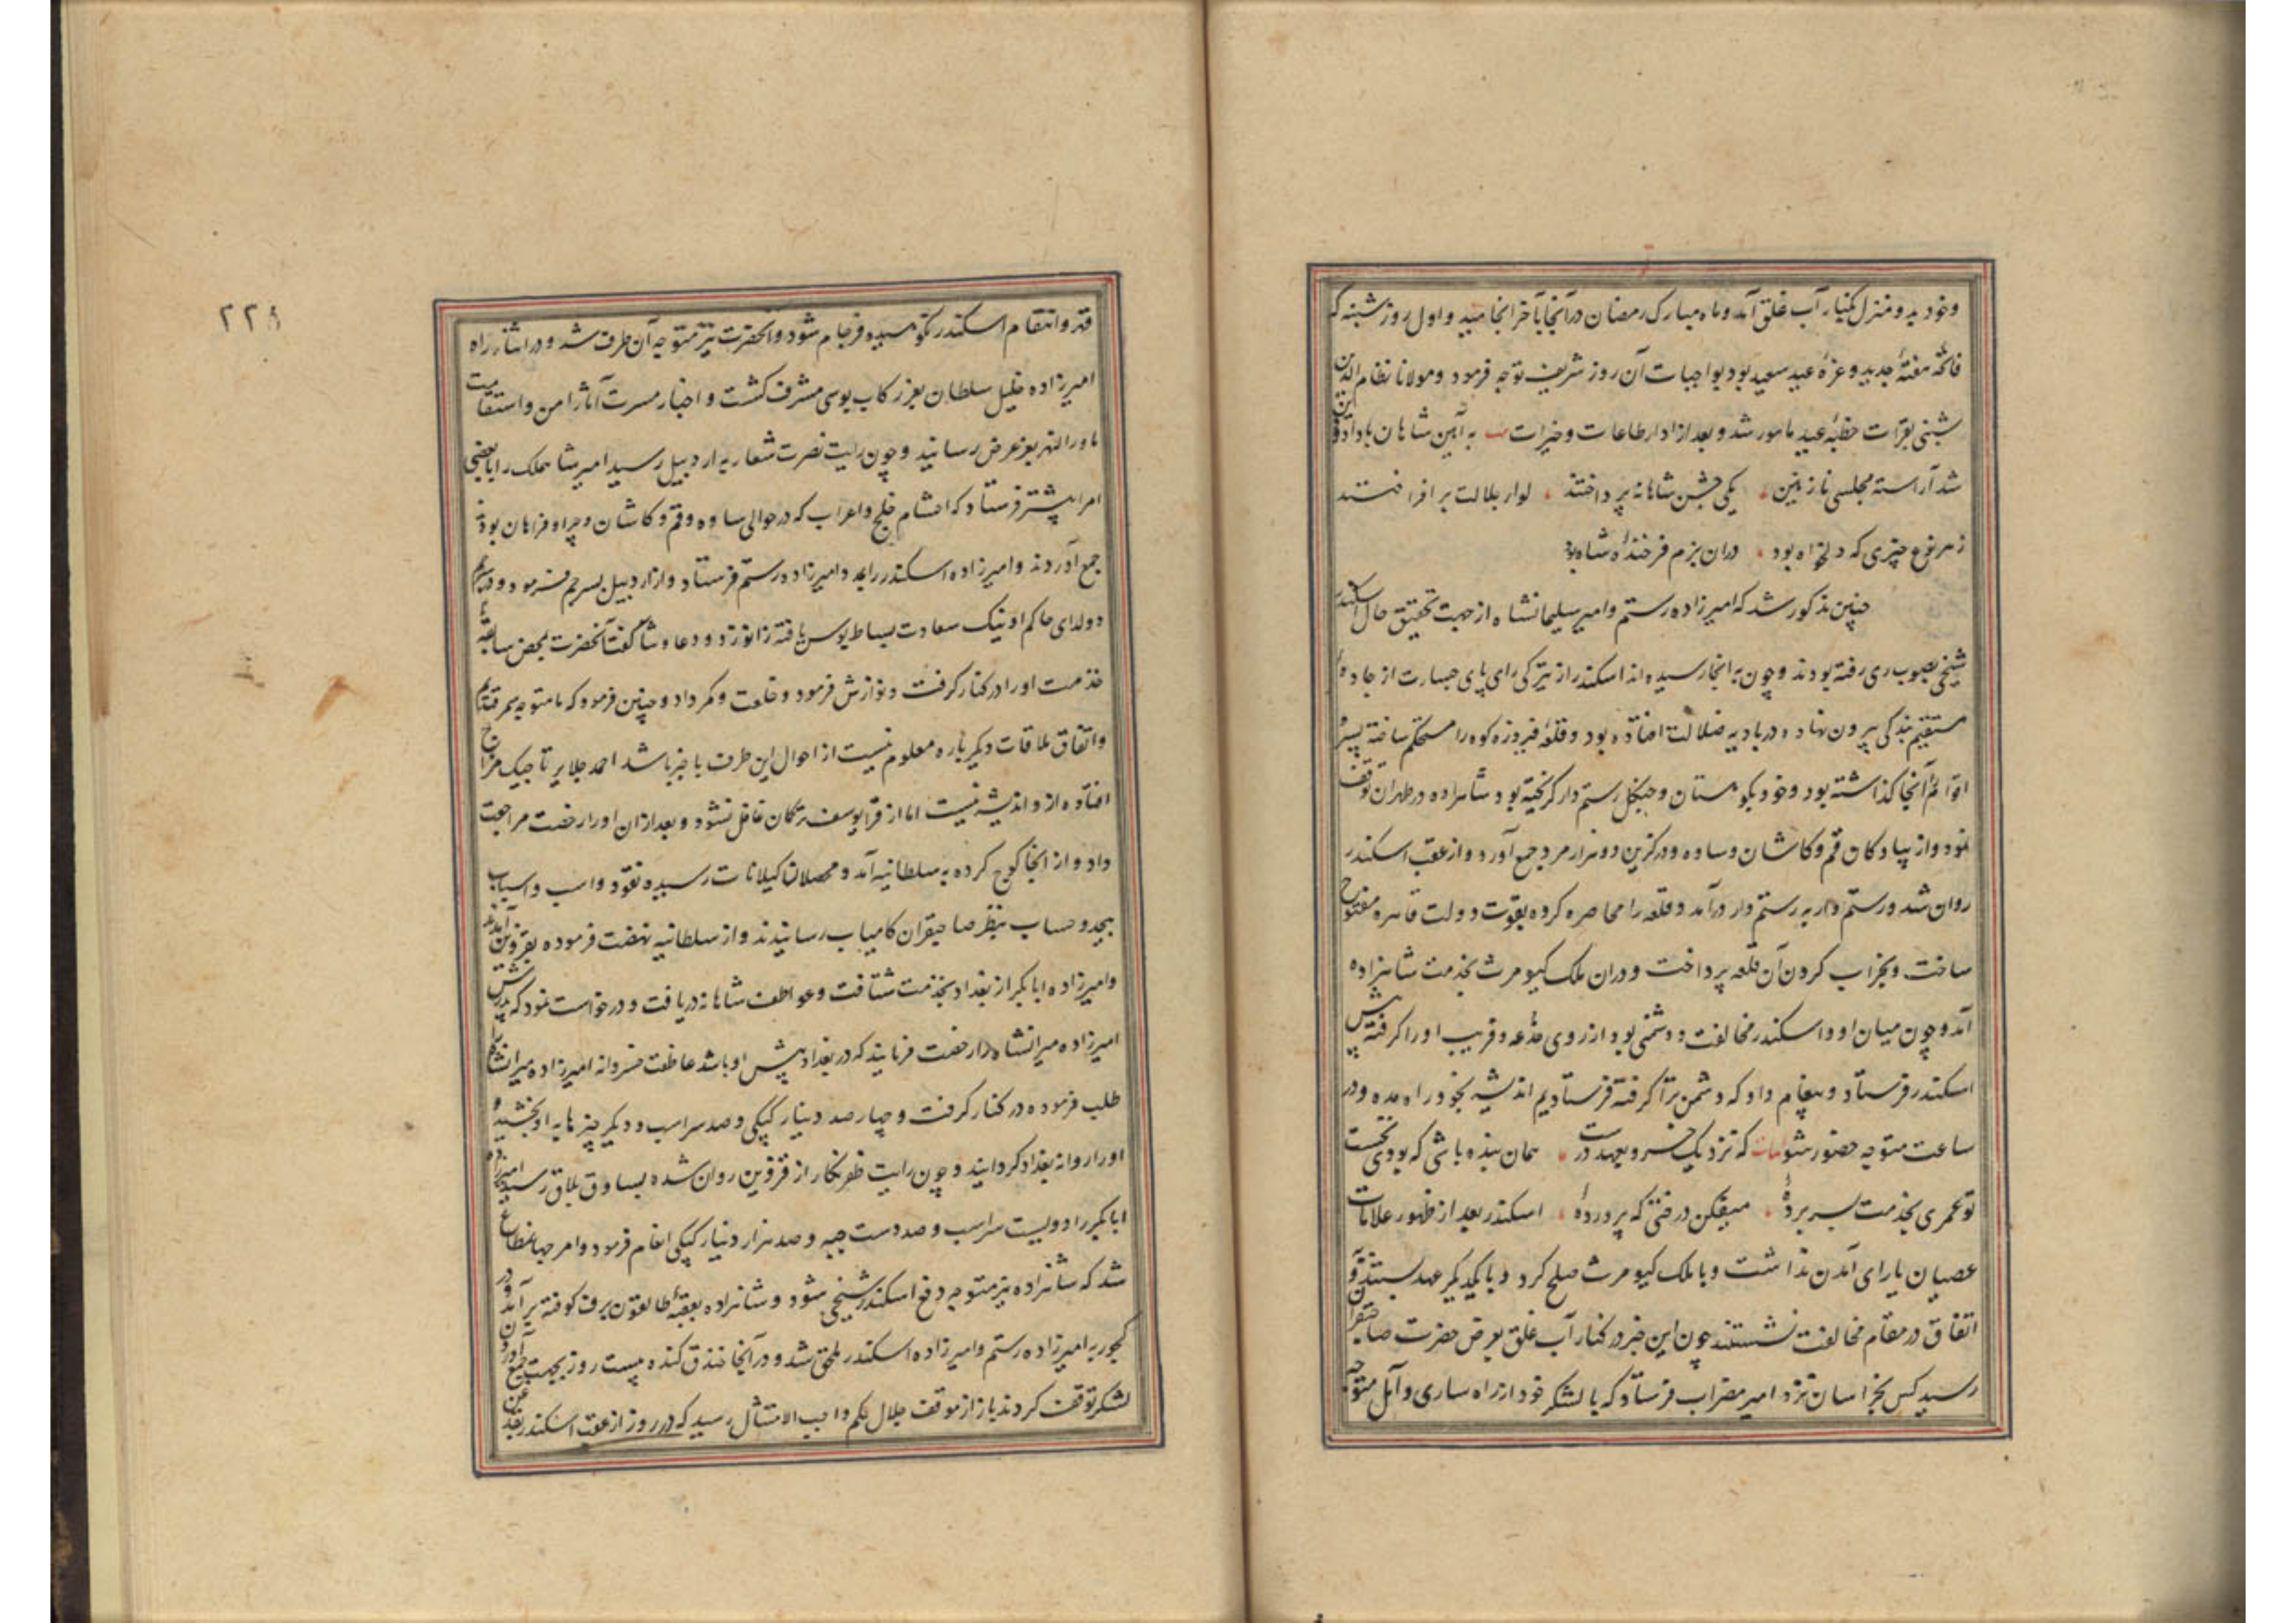 و خود بدو منزل بکنار آب غلق آمد و ماه مبارک رمضان در آنجا بآخر انجامید و اول روز شنبه که
فاتحه هفتهٔ جدید و غرهٔ عید سعید بود بواجبات آن روز شریف توجه فرمود و مولانا نظام الدین
شنبی بقرات خطبهٔ عید مامور شد و بعد از ادا رطاعات و خیرات به آیین شاهان باداد و دین
شد آراسته مجلسی نازنین یکی جشن شاهانه پرداختند لوار بلالت بر افراختند
ز هر نوع چیزی که دلخواه بود دران بزم فرخندهٔ شاه بود
چنین مذکور شد که امیرزاده رستم و امیر سلیمانشاه از جهت تحقیق حال اسکندر
شیخی بصوب ری رفته بودند و چون به انجا رسیده اند اسکندر از تیرگی رای پای جسارت از جادهٔ
مستقیم بندگی بیرون نهاده در بادیه ضلالت افتاده بود و قلعهٔ فیروزه کوه را مستحکم ساخته پسر و
اقوام را آنجا گذاشته بود و خود بکوهستان و جنگل رستم دار گریخته بود شاهزاده در طهران توقف
نمود و از پیادگان قم و کاشان و ساوه و درگزین دو هزار مرد جمع آورد و از عقب اسکندر
روان شد و رستم دار به رستم دار درآمد و قلعه را محاصره کرده بقوت دولت قاهره مفتوح
ساخت و بخراب کردن آن قلعه پرداخت و دران ملک کیومرث بخدمت شاهزاده
آمد و چون میان او و اسکندر مخالفت و دشمنی بود از روی خدعه و فریب او را گرفته پیش
اسکندر فرستاد و پیغام داد که دشمن ترا گرفته فرستادیم اندیشه بخود راه مده و در
ساعت متوجه حضور شو ابیات که نزدیک خسرو بعهد درست همان بنده باشی که بودی نخست
تو عمری بخدمت بسر بردهٔ میفکن درختی که پروردهٔ اسکندر بعد از ظهور علامات
عصیان یارای آمدن نداشت و با ملک کیومرث صلح کرد و با یکدیگر عهد بستند و
اتفاق در مقام مخالفت نشستند چون این خبر در کنار آب غلق بعرض حضرت صاحبقران
رسید کس بخراسان نزد امیر مضراب فرستاد که با لشکر خود از راه ساری و آمل متوجه
قهر و انتقام اسکندر نکوهیده فرجام شود و آنحضرت نیز متوجه آن طرف شد و در اثناء راه
امیرزاده خلیل سلطان بعز رکاب بوسی مشرف گشت و اخبار مسرت آثار امن و استقامت
ماوراالنهر بعز عرض رسانید و چون رایت نصرت شعار به اردبیل رسید امیر شاهملک را با بعضی
امرا پیشتر فرستاد که احشام خلج و اعراب که در حوالی ساوه و قم و کاشان و چرا و فراهان بودند
جمع آوردند و امیرزاده اسکندر را بمدد امیرزاده رستم فرستاد و از اردبیل بسرچم فرمود و در سرچم
دولدای حاکم اونیک سعادت بساط بوسی یافته زانو زد و دعا و ثنا گفت آنحضرت بمحض سابقهٔ
خدمت او را در کنار گرفت و نوازش فرمود و خلعت و کمر داد و چنین فرمود که ما متوجه سمرقندیم
و اتفاق ملاقات دیگر باره معلوم نیست از احوال این طرف باخبر باشد احمد جلایر تاجیک مزاج
افتاده از و اندیشه نیست اما از قرا یوسف ترکمان غافل نشود و بعد ازان او را رخصت مراجعت
داد و از انجا کوچ کرده به سلطانیه آمد و محصلان گیلانات رسیده نقود و اسب و اسباب
بیحد و حساب بنظر صاحبقران کامیاب رسانیدند و از سلطانیه نهضت فرموده بقزوین آمد
و امیرزاده ابابکر از بغداد بخدمت شتافت و عواطف شاهانه دریافت و درخواست نمود که پدرش
امیرزاده میرانشاه را رخصت فرمایند که در بغداد پیش او باشد عاطفت خسروانه امیرزاده میرانشاه را
طلب فرموده در کنار گرفت و چهار صد دینار کپکی و صد سر اسب و دیگر چیزها به او بخشید و
او را روانه بغداد گردانیند و چون رایت ظفر نگار از قزوین روان شده بساوق بلاق رسید امیرزاده
ابابکر را دویست سر اسب و صد دست جیبه و صد هزار دینار کپکی انعام فرمود و امر جهانمطاع
شد که شاهزاده نیز متوجه دفع اسکندر شیخی شود و شاهزاده بعقبهٔ طالقون برف کوفته برآمد و در
کجور به امیرزاده رستم و امیرزاده اسکندر ملحق شد و در آنجا خندق کنده بیست روز بجهت جمع آوردن
لشکر توقف کردند باز از موقف جلال حکم واجب الامتثال رسید که در روز از عقب اسکندر بقدغن
۲۲۸